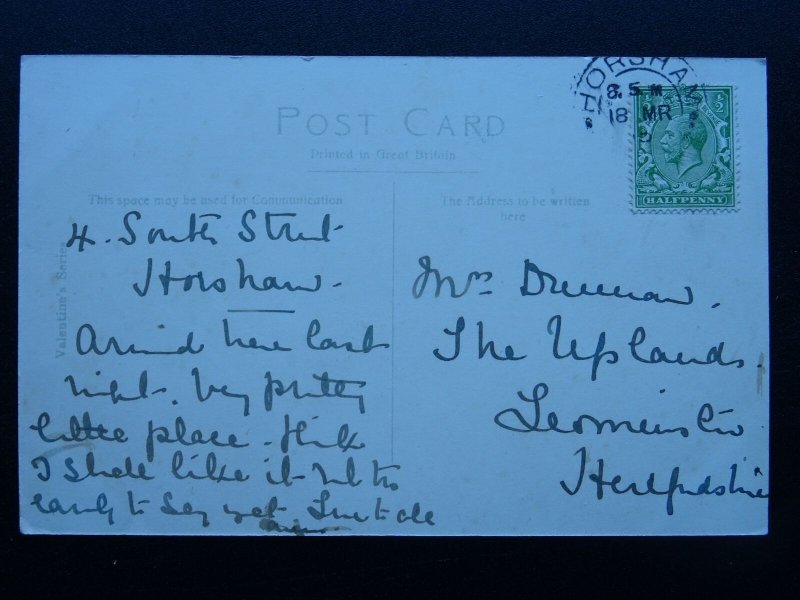 HORSHAM
8.5 M
18 MR
POST CARD
Printed in Great Britain
HALFPENNY
This space may be used for Communication
The Address to be written
here
Valentine's Series
4. South Street
Horsham.
Arrived here last
night. Very pretty
little place. think
I shall like it but too
early to say yet. all
Mrs
The Uplands.
Leominster
Herefordshire